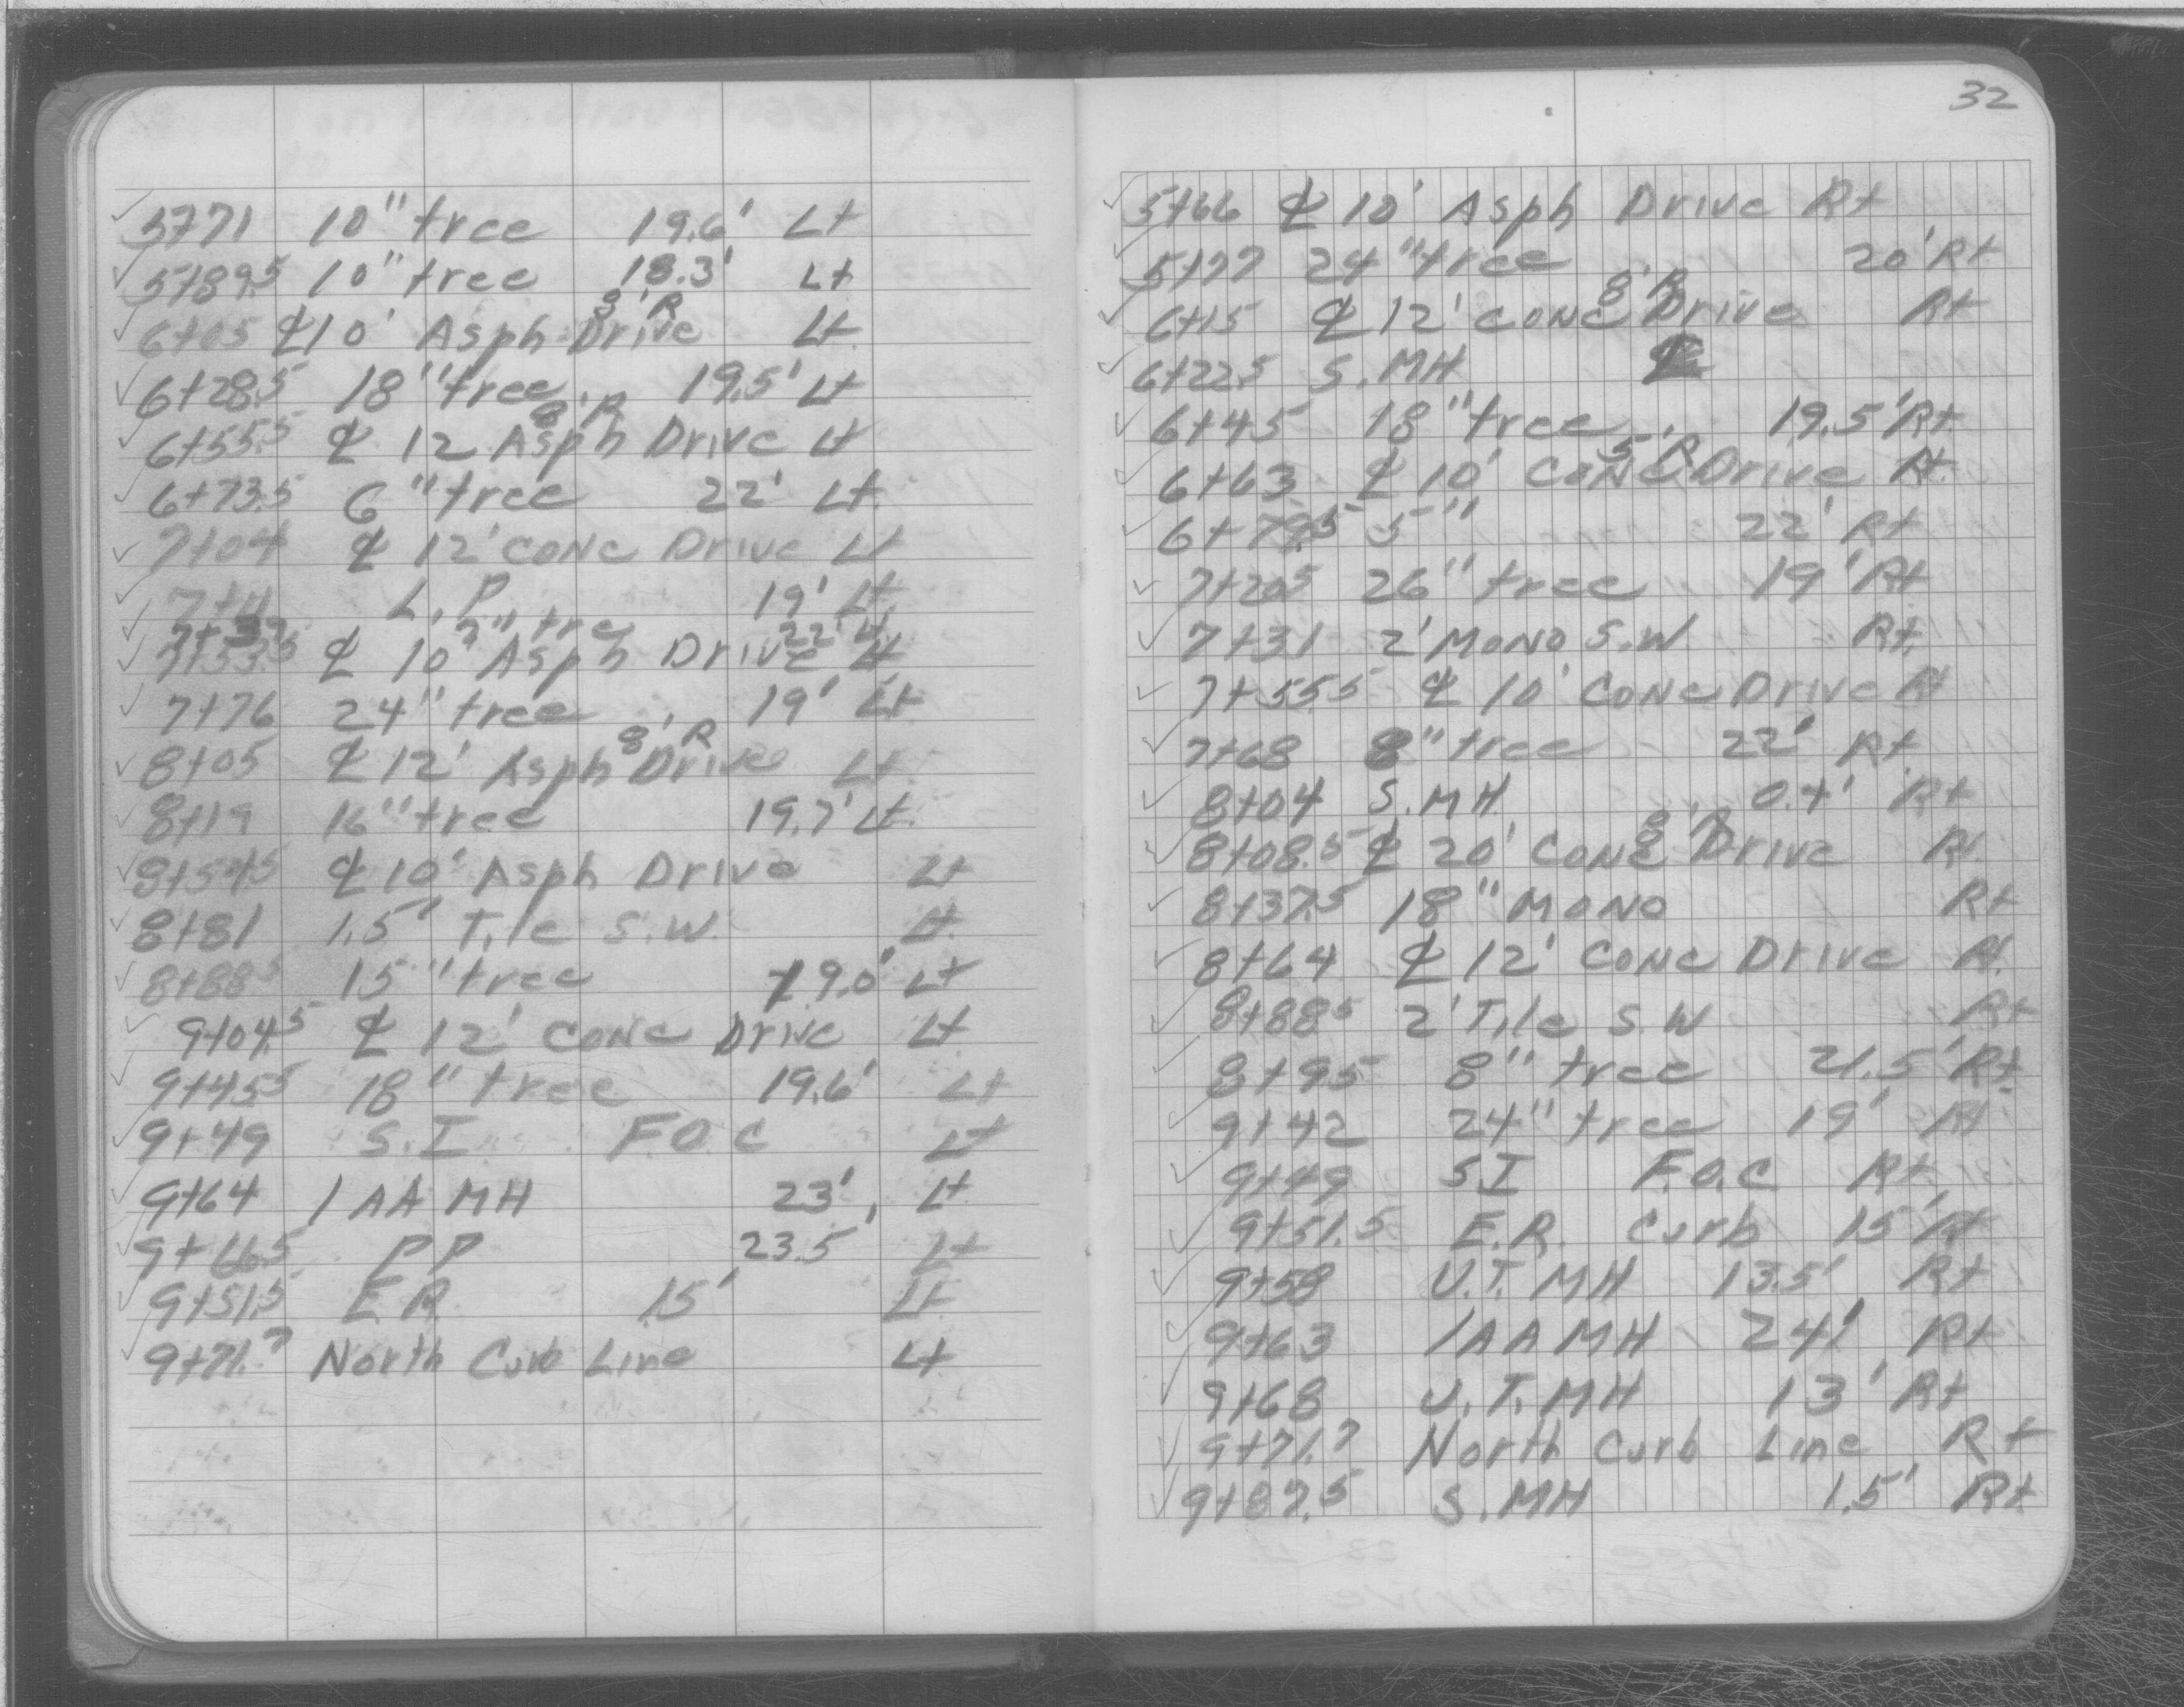 5+71 10" tree 19.6' Lt
5+89.5 10" tree 18.3' Lt
6+05 ℄ 10' Asph 3'R Drive Lt
6+28.5 18" tree 19.5' Lt
6+55.5 ℄ 12 Asph 8'R Drive Lt
6+73.5 6" tree 22' Lt
7+04 ℄ 12' CONC Drive Lt
7+11 L.P. 19' Lt
7+37 7" tre 22' Lt
7+53.5 ℄ 10' Asph Drive Lt
7+76 24" tree 19' Lt
8+05 ℄ 12' Asph 8'R Drive Lt
8+19 16" tree 19.7' Lt
8+54.5 ℄ 10' Asph Drive Lt
8+81 1.5' Tile S.W. Lt
8+88.5 15" tree 19.0' Lt
9+04.5 ℄ 12' CONC Drive Lt
9+45.5 18" tree 19.6' Lt
9+49 S.I F.O.C Lt
9+64 1AA MH 23' Lt
9+66.5 PP 23.5' Lt
9+51.5 E.R. 15' Lt
9+71.7 North Curb Line Lt
32
5+66 ℄ 10' Asph Drive Rt
5+77 24" tree 20' Rt
6+15 ℄ 12' CONC 8'R Drive Rt
6+22.5 S.MH ℄
6+45 18" tree 19.5' Rt
6+63 ℄ 10' CONC 5'R Drive Rt
6+79.5 5" 22' Rt
7+20.5 26" tree 19' Rt
7+31 2' MONO S.W. Rt
7+55.5 ℄ 10' CONC Drive Rt
7+68 8" tree 22' Rt
8+04 S.MH 0.4' Rt
8+08.5 ℄ 20' CONC 8'R Drive Rt
8+37.5 18" MONO Rt
8+64 ℄ 12' CONC Drive Rt
8+88.5 2' Tile S.W Rt
8+95 8" tree 21.5' Rt
9+42 24" tree 19' Rt
9+49 S.I F.O.C Rt
9+51.5 E.R. Curb 15' Rt
9+58 U.T. MH 13.5' Rt
9+63 1AA MH 24' Rt
9+68 U.T. MH 13' Rt
9+71.7 North Curb Line Rt
9+87.5 S.MH 1.5' Rt